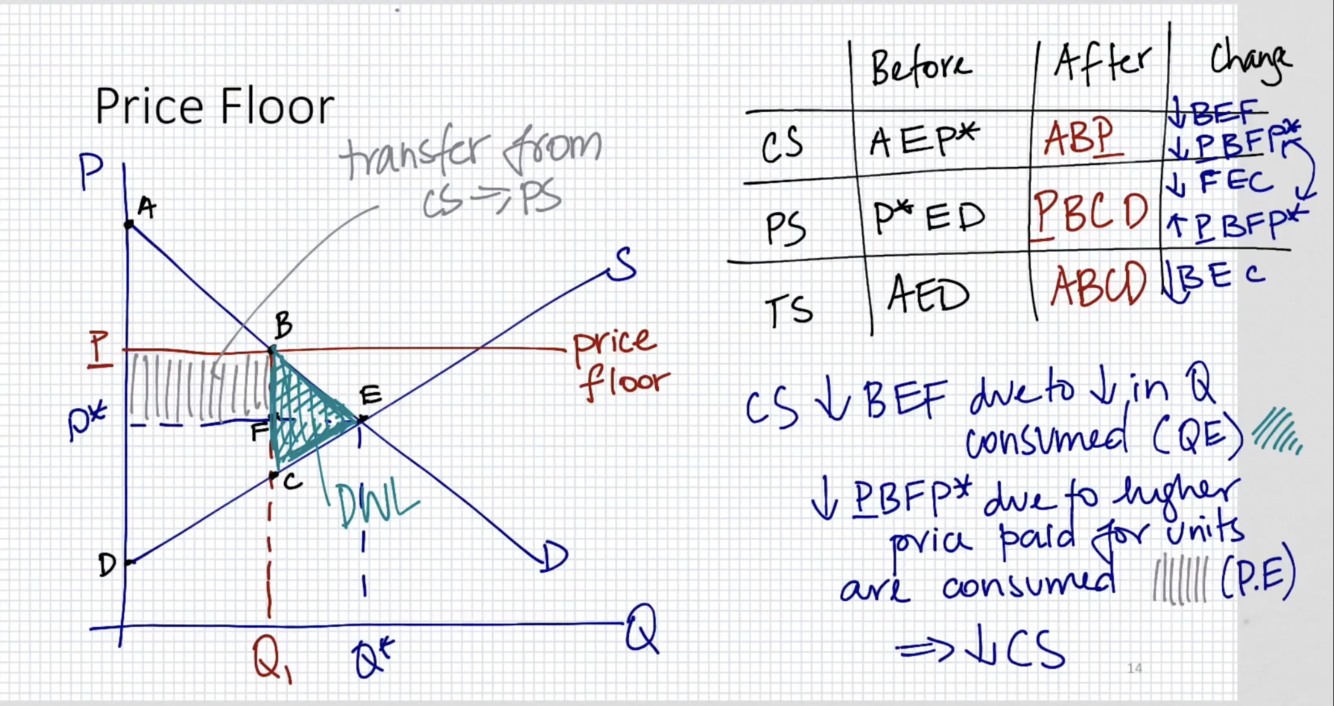 Price Floor
transfer from
CS => PS
P
A
S
B
P̲
price
floor
P*
E
F
C
DWL
D
D
Q
Q₁
Q*
Before After Change
CS AEP* ABP̲ ↓BEF
↓P̲BFP*
PS P*ED P̲BCD ↓FEC
↑P̲BFP*
TS AED ABCD ↓BEC
CS ↓ BEF due to ↓ in Q
consumed (QE)
↓ P̲BFP* due to higher
price paid for units
are consumed (P.E)
=> ↓CS
14